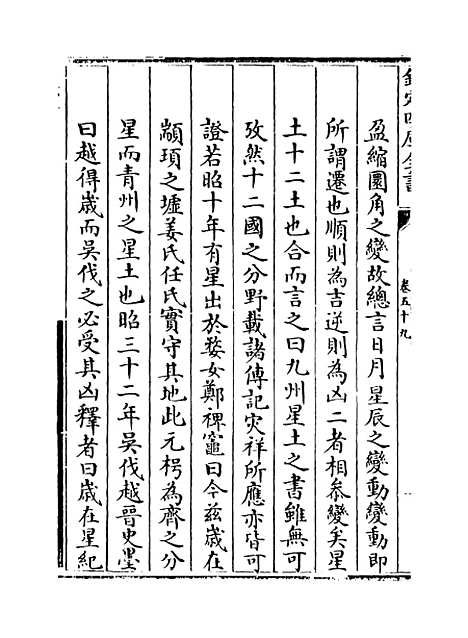 欽定四庫全書
卷五十九
盈縮圜角之變故總言日月星辰之變動變動即
所謂遷也順則為吉逆則為凶二者相叅變矣星
土十二土也合而言之曰九州星土之書雖無可
攷然十二國之分野載諸傳記灾祥所應亦皆可
證若昭十年有星出於婺女鄭裨竈曰今兹嵗在
顓頊之墟姜氏任氏實守其地此元枵為齊之分
星而青州之星土也昭三十二年吳伐越晉史墨
曰越得嵗而吳伐之必受其凶釋者曰嵗在星紀